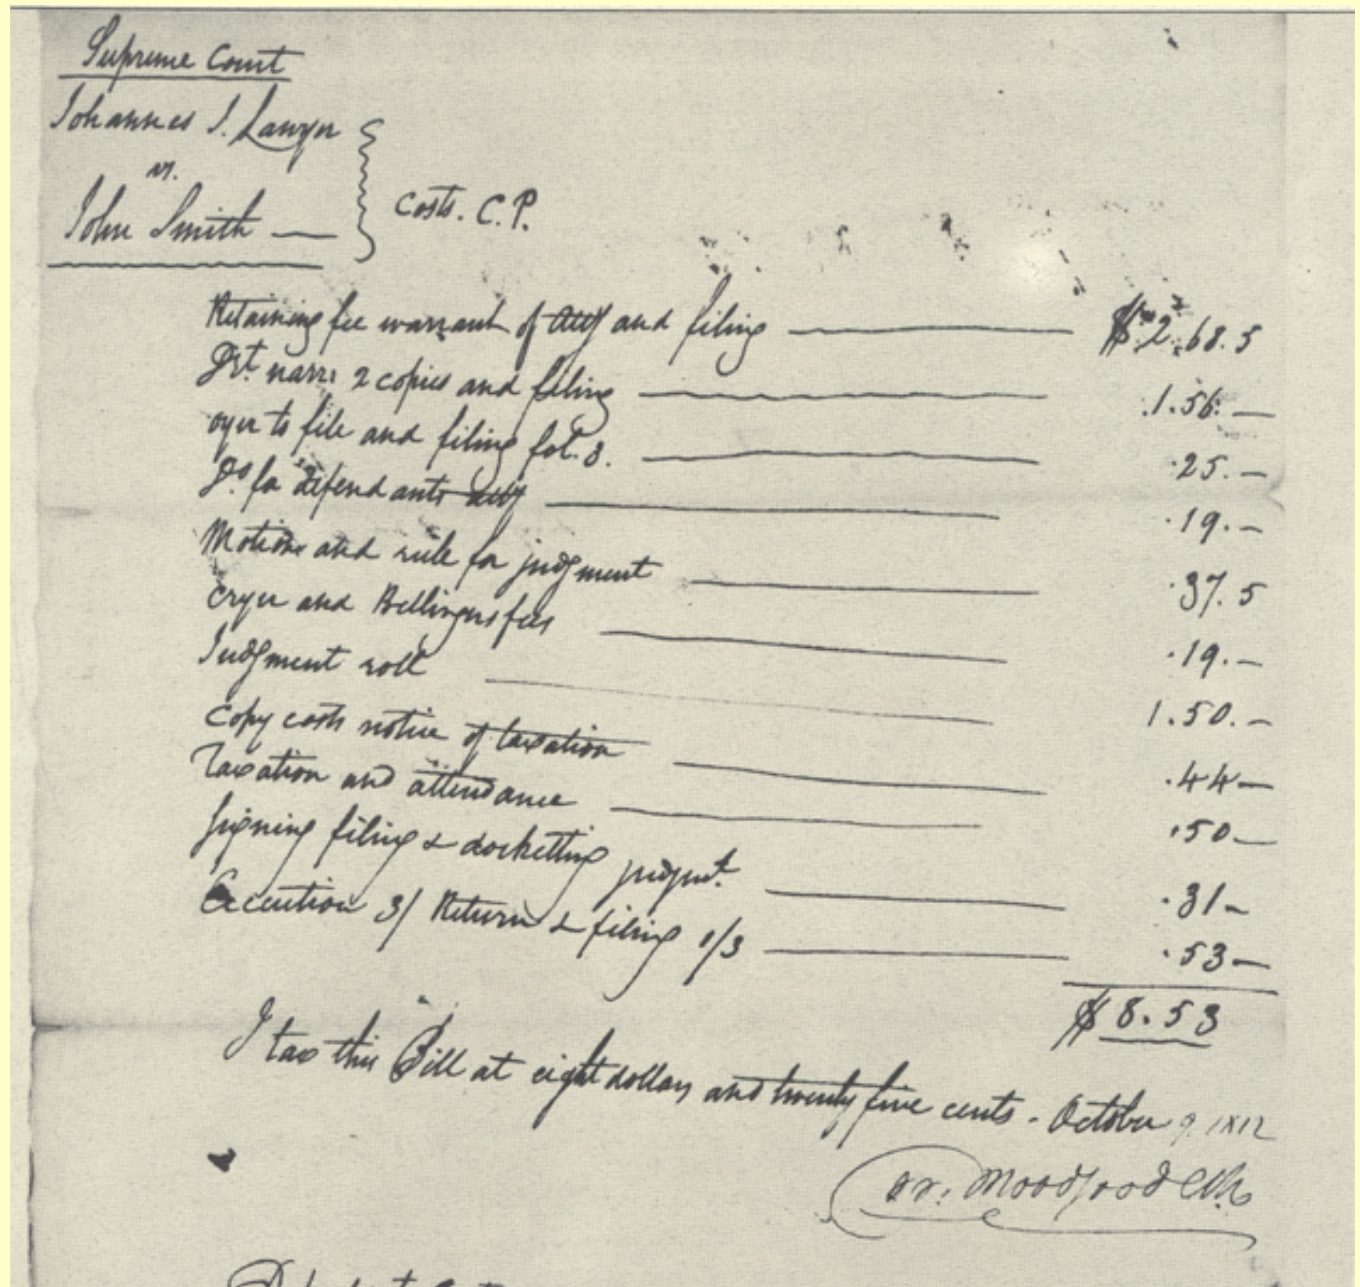 Supreme Court
Johannes I. Lawyer
vs.
John Smith
Costs. C.P.
Retaining fee warrant of Atty and filing $ 2.68.5
Drt. narr: 2 copies and filing 1.56.
oyer to file and filing fol. 3. .25.
Do. for defendants atty .19.
Motions and rule for judgment .37.5
cryer and Bellringers fees .19.
Judgment roll 1.50.
Copy costs notice of taxation .44
Taxation and attendance .50
Signing filing & docketting judgmt. .31
Execution 3/ Return & filing 1/3 .53
$ 8.53
I tax this Bill at eight dollars and twenty five cents - October 9. 1812